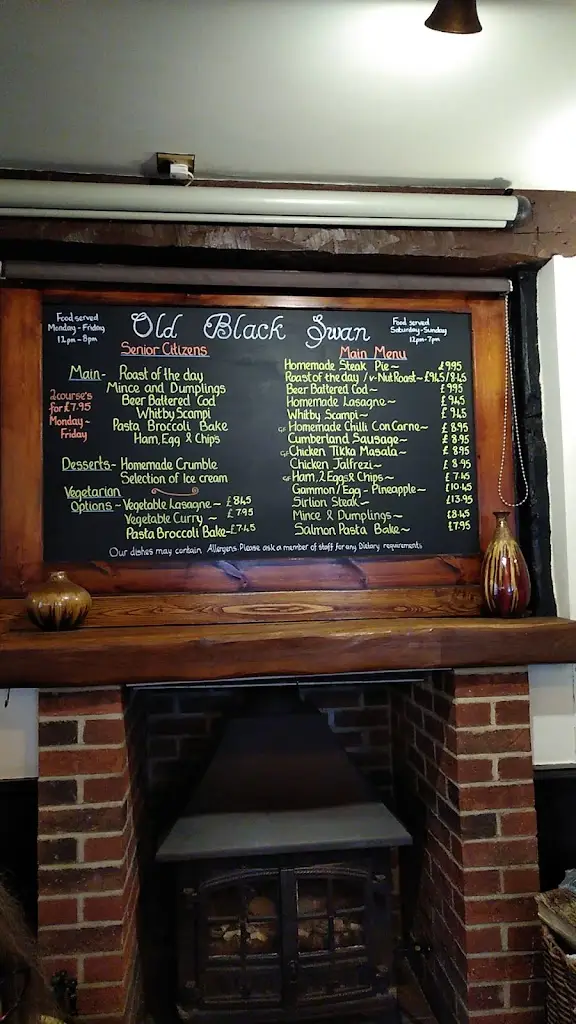 Old Black Swan
Food served
Monday - Friday
12pm - 8pm
Food served
Saturday - Sunday
12pm - 7pm
Senior Citizens
2 course's
for £7.95
Monday ~
Friday
Main - Roast of the day
Mince and Dumplings
Beer Battered Cod
Whitby Scampi
Pasta Broccoli Bake
Ham, Egg & Chips
Desserts - Homemade Crumble
Selection of Ice cream
Vegetarian
Options ~ Vegetable Lasagne ~ £8.45
Vegetable Curry ~ £7.95
Pasta Broccoli Bake ~ £7.45
Main Menu
Homemade Steak Pie ~ £9.95
Roast of the day / v-Nut Roast ~ £9.45/8.45
Beer Battered Cod ~ £9.95
Homemade Lasagne ~ £9.45
Whitby Scampi ~ £9.45
GF Homemade Chilli Con Carne ~ £8.95
Cumberland Sausage ~ £8.95
GF Chicken Tikka Masala ~ £8.95
Chicken Jalfrezi ~ £8.95
GF Ham, 2 Eggs & Chips ~ £7.45
Gammon / Egg - Pineapple ~ £10.45
Sirlion Steak ~ £13.95
Mince & Dumplings ~ £8.45
Salmon Pasta Bake ~ £7.95
Our dishes may contain Allergens. Please ask a member of staff for any Dietary requirements